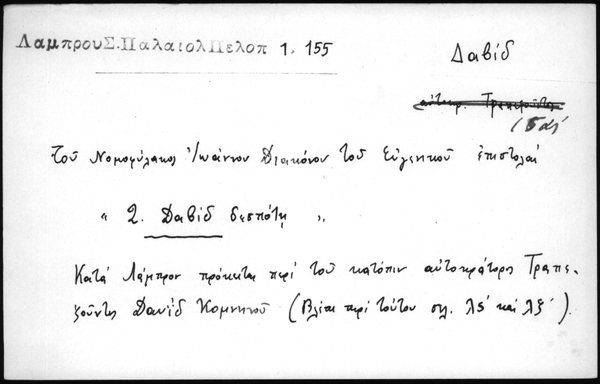 ΛαμπρουΣ.ΠαλαιολΠελοπ 1. 155
Δαβίδ
αὐτοκρ. Τραπεζοῦντος
Τοῦ Νομοφύλακος Ἰωάννου Διακόνου τοῦ Εὐγενικοῦ ἐπιστολαί
" 2. Δαβίδ δεσπότῃ "
Κατά Λάμπρον πρόκειται περί τοῦ κατόπιν αὐτοκράτορος Τραπε-
ζοῦντος Δαυίδ Κομνηνοῦ (Βλέπε περί τούτου σελ. λς' καί λζ').